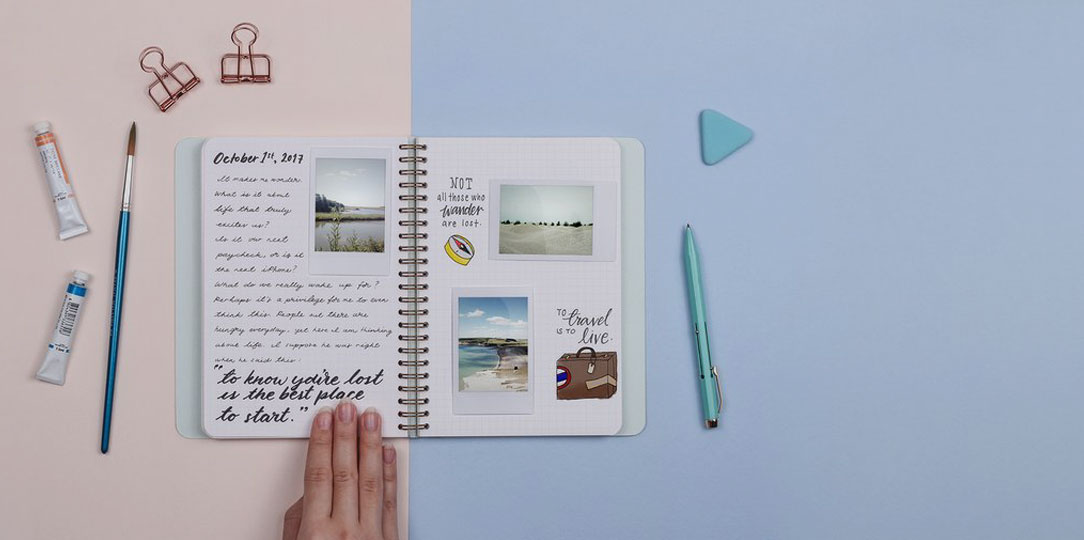 October 1st, 2017
It makes me wonder.
What is it about
life that truly
excites us?
Is it our next
paycheck, or is it
the next iPhone?
What do we really wake up for?
Perhaps it's a privilege for me to even
think this. People out there are
hungry everyday, yet here I am thinking
about life. I suppose he was right
when he said this:
"to know you're lost
is the best place
to start."
NOT
all those who
wander
are lost.
TO travel
IS TO live.